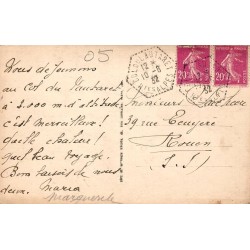 05
Nous déjeunons
au col du Lautaret
à 2.000 m d'altitude
c'est merveilleux!
quelle chaleur!
quel beau voyage.
Bons baisers de nous
deux. Maria
Marguerite
Monsieur
39 rue
Rouen
(S. I)
20
20